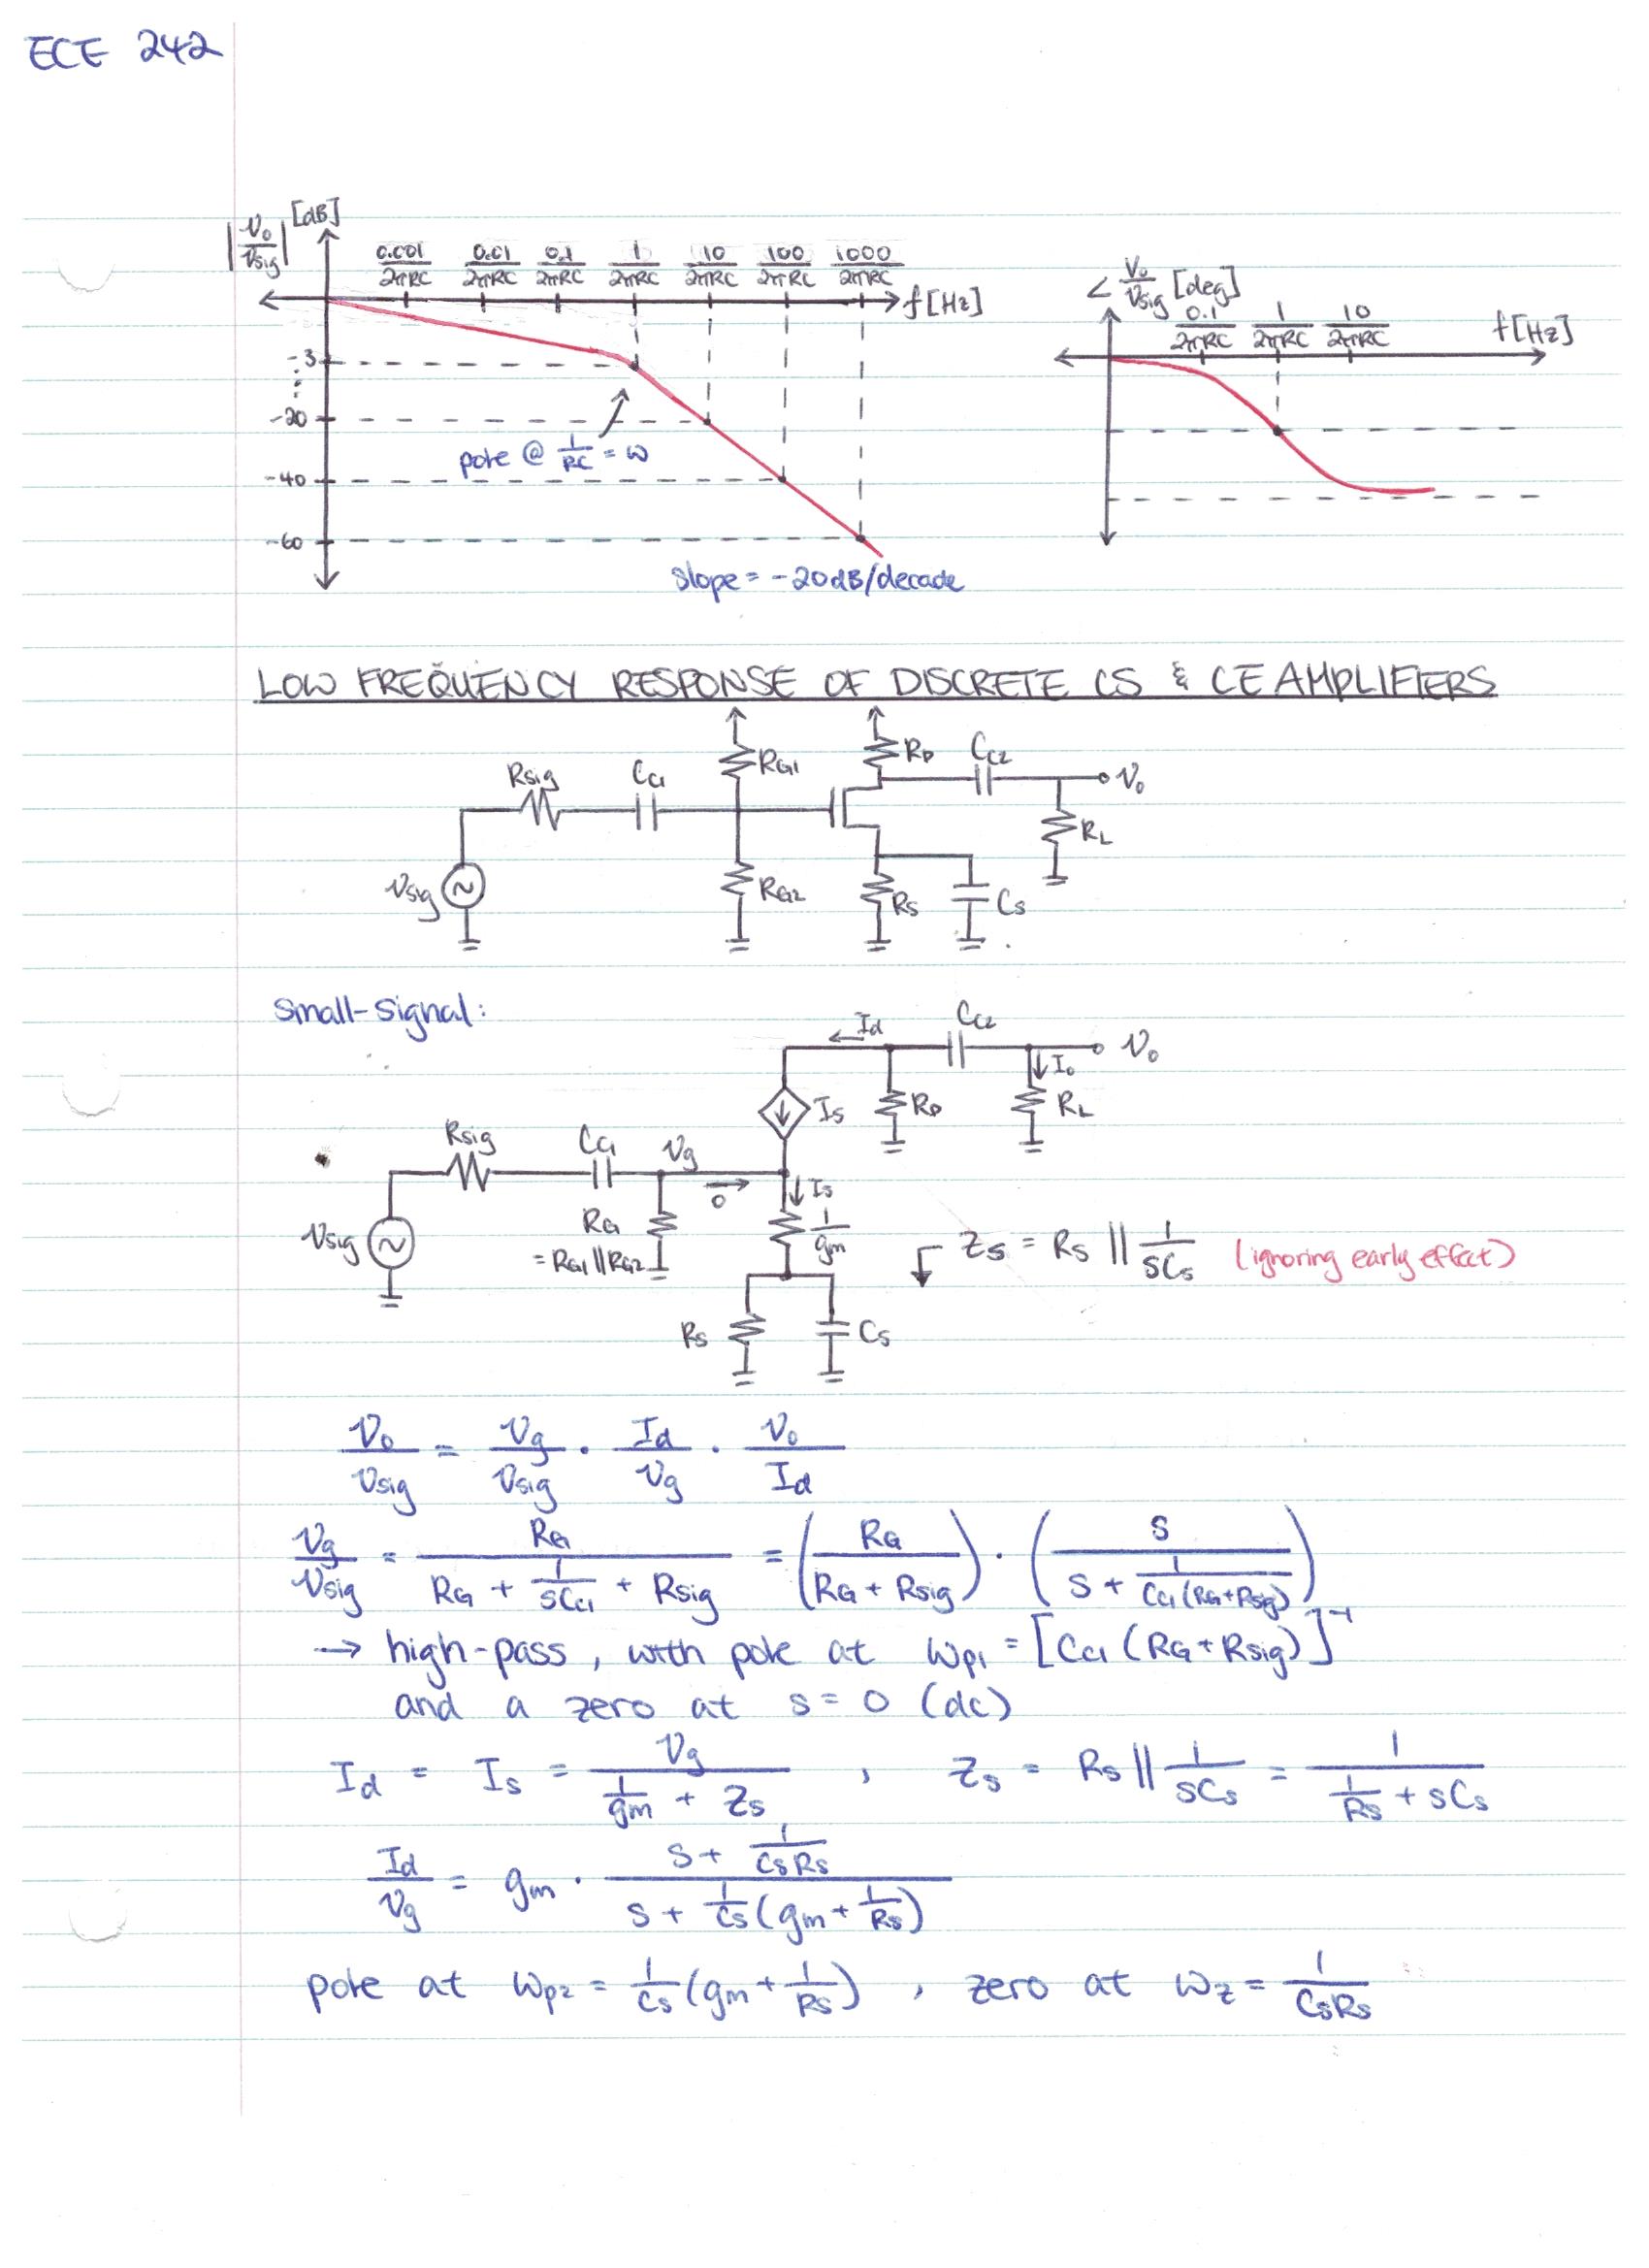 ECE 242
|Vo/Vsig| [dB]
0.001/2πRC 0.01/2πRC 0.1/2πRC 1/2πRC 10/2πRC 100/2πRC 1000/2πRC
f[Hz]
-3
-20
-40
-60
pole @ 1/RC = ω
slope = -20dB/decade
∠ Vo/Vsig [deg]
0.1/2πRC 1/2πRC 10/2πRC
f[Hz]
LOW FREQUENCY RESPONSE OF DISCRETE CS & CE AMPLIFIERS
Rsig CC1 RG1 RD CC2 Vo
RL
Vsig RG2 RS CS
Small-Signal:
Id CC2 Vo
Io
Is RD RL
Rsig CC1 Vg
0 Is
Vsig RG = RG1 || RG2 1/gm
Zs = Rs || 1/sCs (ignoring early effect)
Rs Cs
Vo/Vsig = Vg/Vsig · Id/Vg · Vo/Id
Vg/Vsig = RG/(RG + 1/sCC1 + Rsig) = (RG/(RG + Rsig)) · (s/(s + 1/(CC1(RG+Rsig))))
→ high-pass, with pole at ωp1 = [CC1(RG+Rsig)]⁻¹
and a zero at s = 0 (dc)
Id = Is = Vg/(1/gm + Zs) , Zs = Rs || 1/sCs = 1/(1/Rs + sCs)
Id/Vg = gm · (s + 1/CsRs)/(s + 1/Cs(gm + 1/Rs))
pole at ωp2 = 1/Cs(gm + 1/Rs) , zero at ωz = 1/CsRs